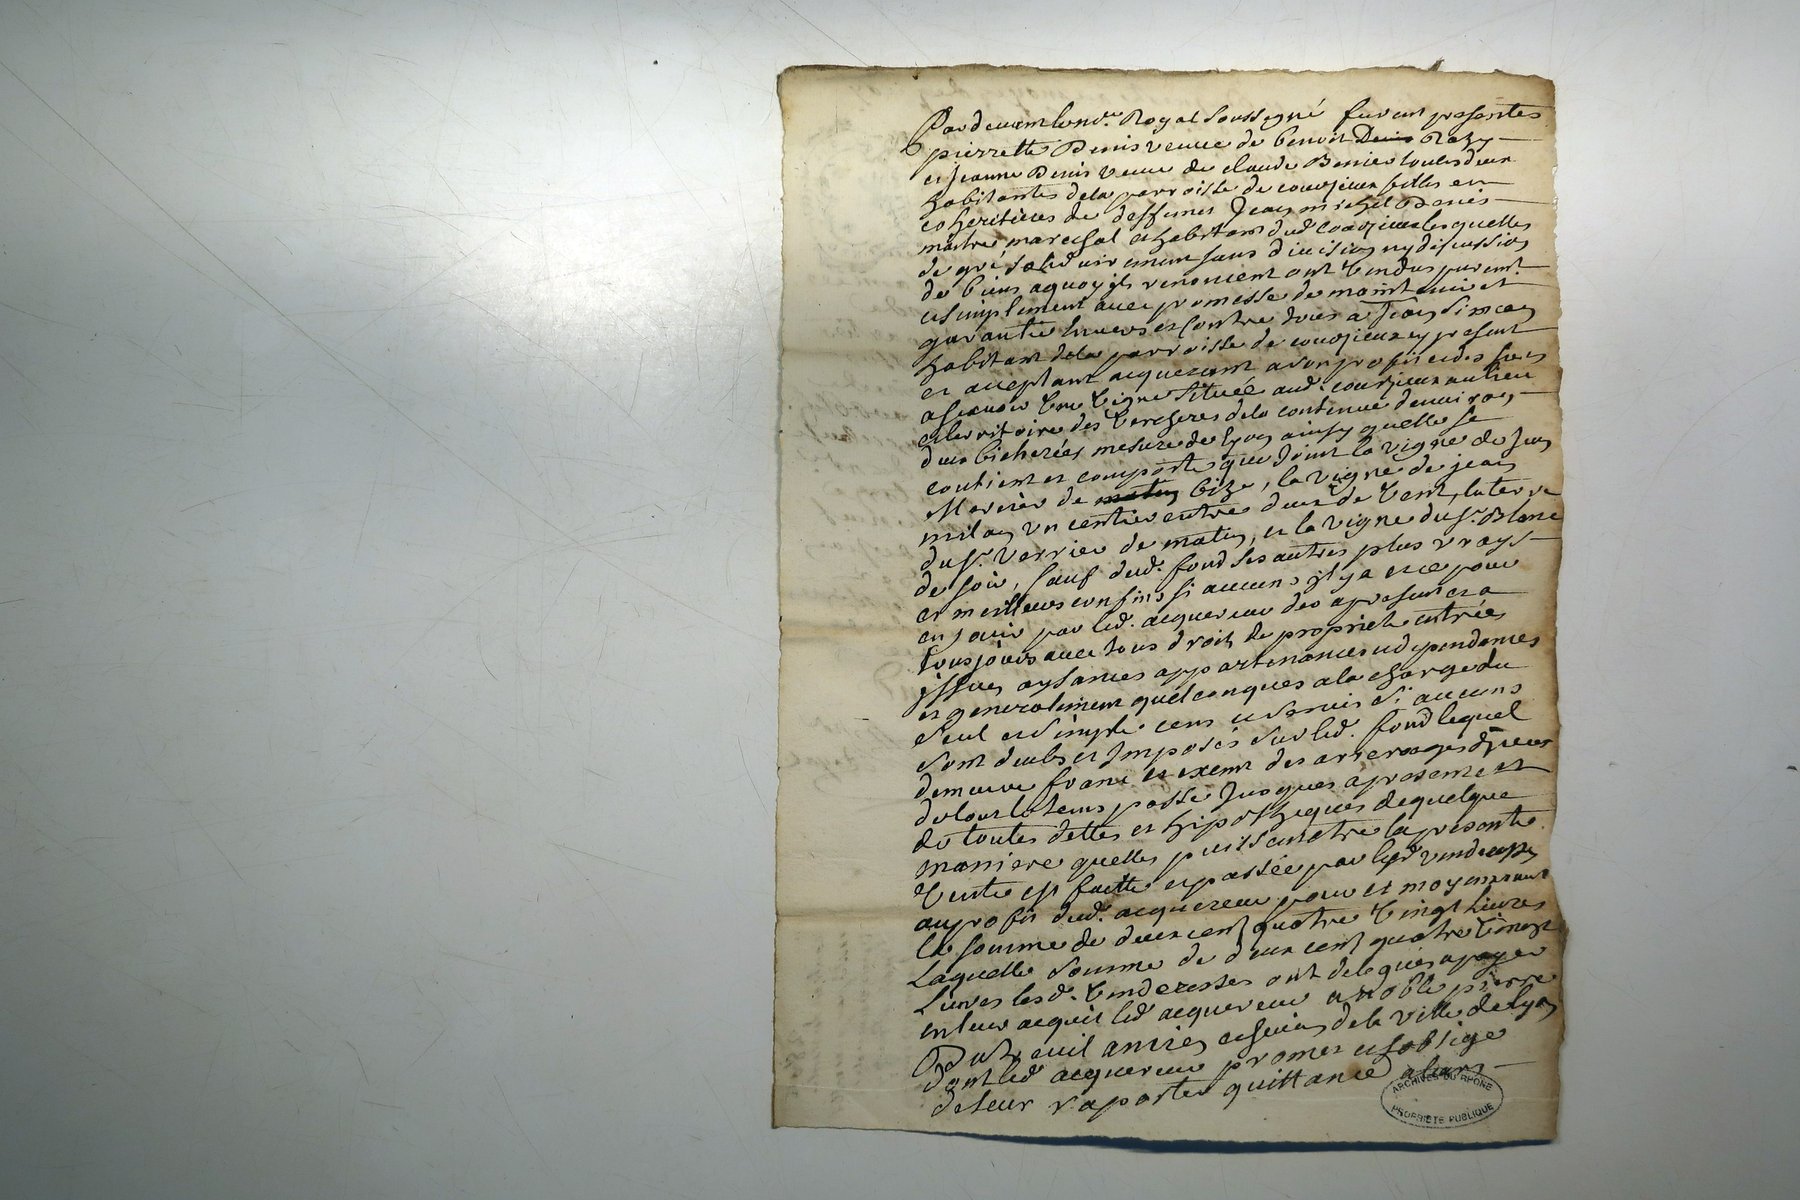 Pardevant le no.re Royal soussigné furent presentes
pierrette Denis veuve de benoit Denis Razy
et jeanne Denis veuve de claude Bonier toutes deux
habitantes dela parroisse de courzieux filles et
coheritieres de deffunct Jean michel Denis
maitre marechal et habitant dud courzieux lesquelles
de gré solid.airement sans division ny discussion
de biens aquoy ils renoncent ont vendus purem.t
et simplement avec promesse de maintenir et
garantir envers et contre tous a Jean Simean
habitant dela parroisse de courzieux cy present
et acceptant acquerant a son profit et des siens
ascavoir une vigne située aud. courzieux au lieu
et territoire des vercheres dela contenue denviron
deux bicherées mesure de lyon ainsy quelle se
contient et comporte que joint la vigne de Jean
Mercier de matin bize, la vigne de jean
milan un sentier entre deux de vent, la terre
du s.r verrier de matin, et la vigne du s.r Blanc
de soir, sauf dud. fond ses autres plus vrays
et meilleurs confins si aucuns il y a et ce pour
en jouir par led. acquereur des apresent et a
tousjours avec tous droits de propriete entrées
issues aysances appartenances et dependances
et generalement quelconques ala charge du
seul et simple cens et servis si aucuns
sont deubs et Imposés sur led. fond lequel
demeure franc et exempt des arrerages diceux
de tout le tems passé jusques apresent et
de toutes dettes et hipotheques de quelque
maniere quelles puissent etre la presente
vente est faitte et passée par lesd venderesses
au profit dud. acquereur pour et moyennant
la somme de deux cent quatre vingt livres
Laquelle somme de deux cent quatre vingt
Livres lesd. venderesses ont delegués a payer
en leur acquit led acquereur a noble pierre
Dutreuil ancien eschevin dela ville de lyon
dont led acquereur promet et soblige
de leur raporter quittance alors
ARCHIVES DU RHONE
PROPRIETE PUBLIQUE